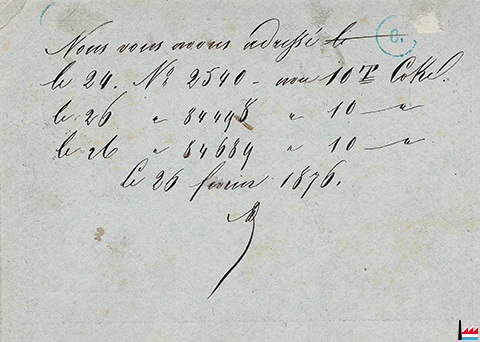 Nous vous avons adressé le
le 24. No 2540 - avec 10 T Coke.
le 26 " 84498 " 10 — "
le 26 " 84689 " 10 — "
le 26 février 1876.